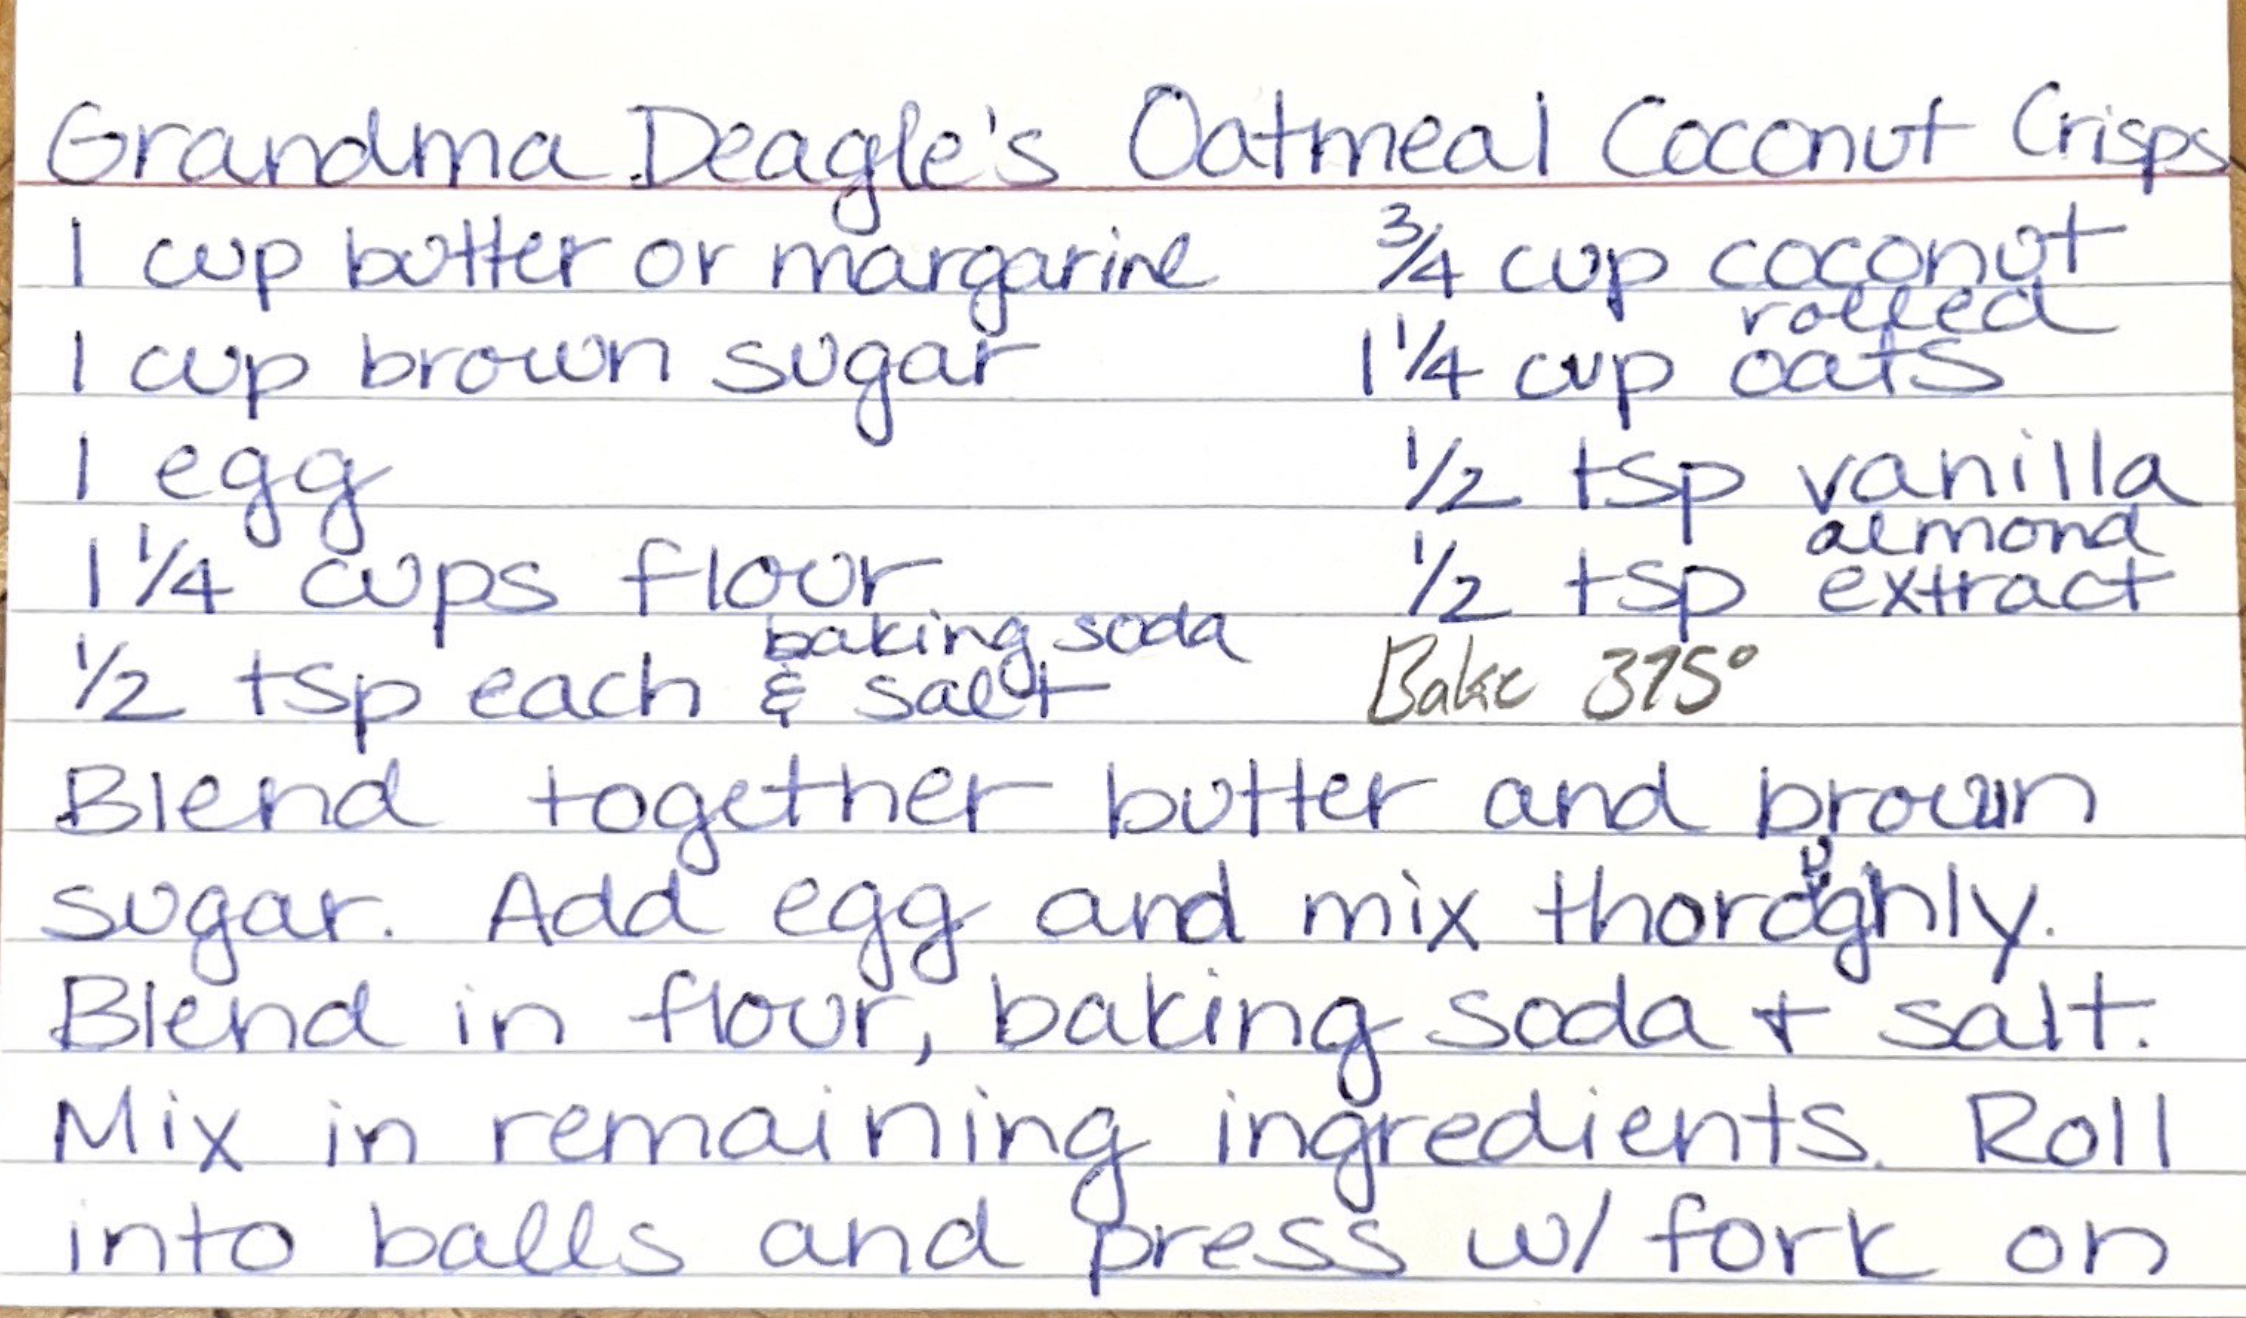 Grandma Deagle's Oatmeal Coconut Crisps
1 cup butter or margarine
1 cup brown sugar
1 egg
1 1/4 cups flour
1/2 tsp each baking soda
& salt
3/4 cup coconut
1 1/4 cup rolled
oats
1/2 tsp vanilla
1/2 tsp almond
extract
Bake 375°
Blend together butter and brown
sugar. Add egg and mix thoroughly.
Blend in flour, baking soda + salt.
Mix in remaining ingredients. Roll
into balls and press w/ fork on